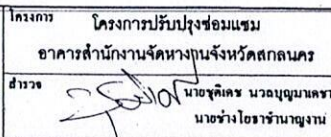 โครงการ
โครงการปรับปรุงซ่อมแซม
อาคารสำนักงานจัดหางานจังหวัดสกลนคร
สำรวจ
นายชุติเดช นวลบุญมาเดชา
นายช่างโยธาชำนาญงาน